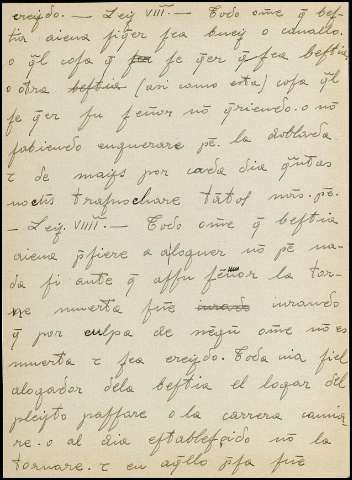 creẏdo. — Leẏ VIII. — Todo om̄e q̄ bes-
tia aiena fiq̄er sea bueẏ o cauallo.
o q̄l cosa q̄ sea se q̄er q̄ sea bestia
o otra bestia (asi como esta) cosa q̄l
se q̄er su señor nō q̄riendo. o nō
sabiendo enguerare pē. la doblada
τ de mais por cada dia q̄ntas
noches trasnochare tātos mrs. pē.
— Leẏ. VIIII. — Todo om̄e q̄ bestia
aiena p̄siere a aloguer nō pē na-
da si ante q̄ assu señor la tor-
ne muerta fuē iurando
q̄ por culpa de negū om̄e nō es
muerta τ sea creẏdo. Toda uia si el
alogador dela bestia el logar del
pleẏto passare o la carrera camia-
re. o al dia establesçido nō la
tornare. τ en aq̄llo p̄sa fuē